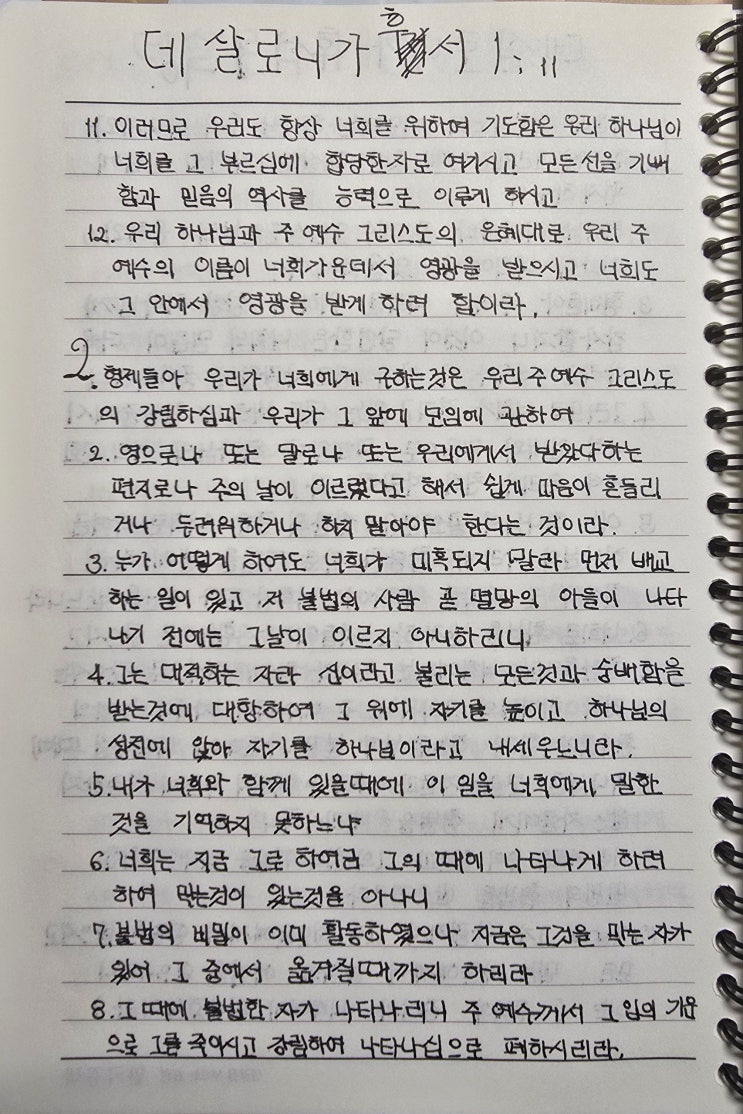 데살로니가 후서 1:11
11. 이러므로 우리도 항상 너희를 위하여 기도함은 우리 하나님이
너희를 그 부르심에 합당한자로 여기시고 모든선을 기뻐
함과 믿음의 역사를 능력으로 이루게 하시고
12. 우리 하나님과 주 예수 그리스도의 은혜대로 우리 주
예수의 이름이 너희가운데서 영광을 받으시고 너희도
그 안에서 영광을 받게 하려 함이라.
2. 형제들아 우리가 너희에게 구하는것은 우리주예수 그리스도
의 강림하심과 우리가 그 앞에 모임에 관하여
2. 영으로나 또는 말로나 또는 우리에게서 받았다하는
편지로나 주의 날이 이르렀다고 해서 쉽게 마음이 흔들리
거나 두려워하거나 하지 말아야 한다는 것이라.
3. 누가 어떻게 하여도 너희가 미혹되지 말라 먼저 배교
하는 일이 있고 저 불법의 사람 곧 멸망의 아들이 나타
나기 전에는 그날이 이르지 아니하리니
4. 그는 대적하는 자라 신이라고 불리는 모든것과 숭배함을
받는것에 대항하여 그 위에 자기를 높이고 하나님의
성전에 앉아 자기를 하나님이라고 내세우느니라.
5. 내가 너희와 함께 있을때에 이 일을 너희에게 말한
것을 기억하지 못하느냐
6. 너희는 지금 그로 하여금 그의 때에 나타나게 하려
하여 막는것이 있는것을 아나니
7. 불법의 비밀이 이미 활동하였으나 지금은 그것을 막는 자가
있어 그 중에서 옮겨질때까지 하리라
8. 그 때에 불법한 자가 나타나리니 주 예수께서 그 입의 기운
으로 그를 죽이시고 강림하여 나타나심으로 폐하시리라.